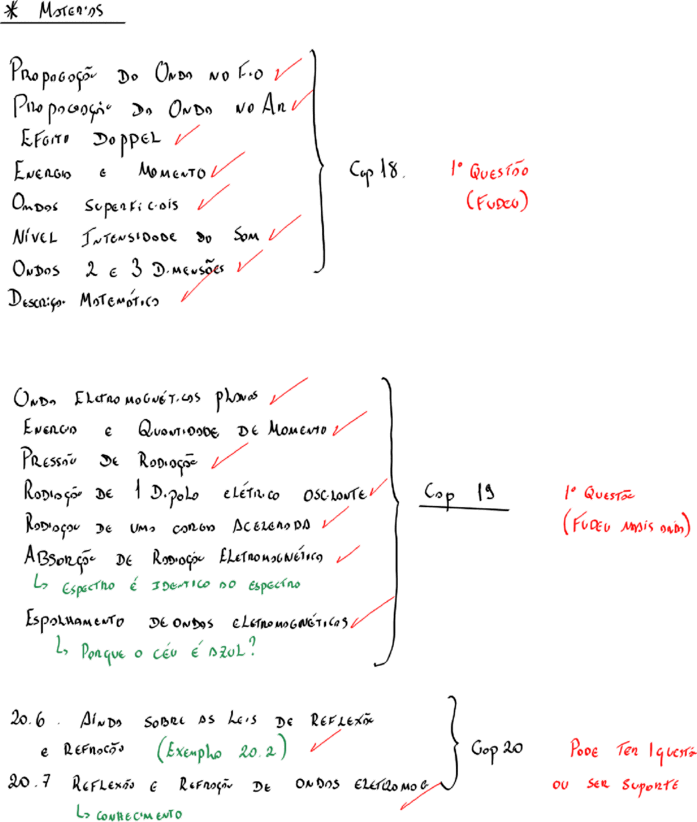 * MATERIAS
PROPAGAÇÃO DA ONDA NO FIO
PROPAGAÇÃO DA ONDA NO AR
EFEITO DOPPEL
ENERGIA E MOMENTO
ONDAS SUPERFICIAIS
NÍVEL INTENSIDADE DO SOM
ONDAS 2 E 3 DIMENSÕES
DESCRIÇÃO MATEMÁTICA
Cap 18.
1ª QUESTÃO
(FUDEU)
ONDA ELETROMAGNÉTICAS PLANAS
ENERGIA E QUANTIDADE DE MOMENTO
PRESSÃO DE RADIAÇÃO
RADIAÇÃO DE 1 DIPOLO ELÉTRICO OSCILANTE
RADIAÇÃO DE UMA CARGA ACELERADA
ABSORÇÃO DE RADIAÇÃO ELETROMAGNÉTICA
↳ ESPECTRO É IDENTICO AO ESPECTRO
ESPALHAMENTO DE ONDAS ELETROMAGNÉTICAS
↳ PORQUE O CÉU É AZUL?
Cap 19
1ª QUESTÃO
(FUDEU MAIS AINDA)
20.6. AINDA SOBRE AS LEIS DE REFLEXÃO
E REFRAÇÃO (Exemplo 20.2)
20.7 REFLEXÃO E REFRAÇÃO DE ONDAS ELETROMAG
↳ CONHECIMENTO
Cap 20
PODE TER 1 QUESTÃ
OU SER SUPORTE